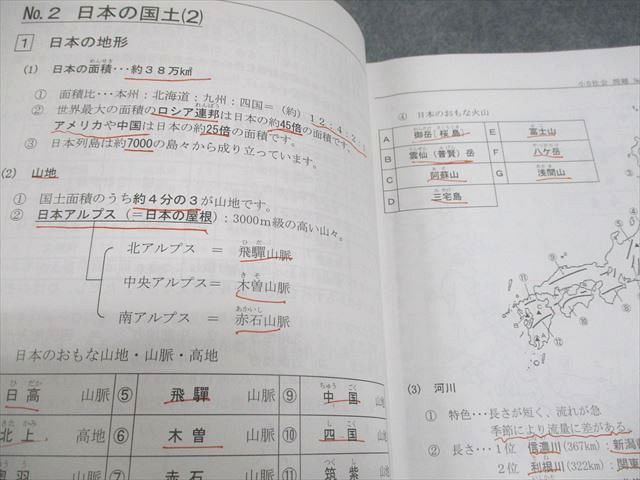 No.2 日本の国土(2)
1 日本の地形
(1) 日本の面積･･･約38万km²
① 面積比･･･本州：北海道：九州：四国＝(約) 12：4：2：1
② 世界最大の面積のロシア連邦は日本の約45倍の面積です。
アメリカや中国は日本の約25倍の面積です。
③ 日本列島は約7000の島々から成り立っています。
(2) 山地
① 国土面積のうち約４分の３が山地です。
② 日本アルプス（＝日本の屋根）：3000m級の高い山々。
北アルプス ＝ 飛驒山脈
中央アルプス ＝ 木曽山脈
南アルプス ＝ 赤石山脈
日本のおもな山地・山脈・高地
日高 山脈 ⑤ 飛驒 山脈 ⑨ 中国 山地
北上 高地 ⑥ 木曽 山脈 ⑩ 四国 山地
奥羽 山脈 ⑦ 赤石 山脈 ⑪ 筑紫 山地
小5社会 問題
④ 日本のおもな火山
A 御岳（桜島） E 富士山
B 雲仙（普賢）岳 F 八ケ岳
C 阿蘇山 G 浅間山
D 三宅島
(3) 河川
① 特色･･･長さが短く、流れが急
季節により流量に差がある
② 長さ･･･1位 信濃川(367km)：新潟
2位 利根川(322km)：関東